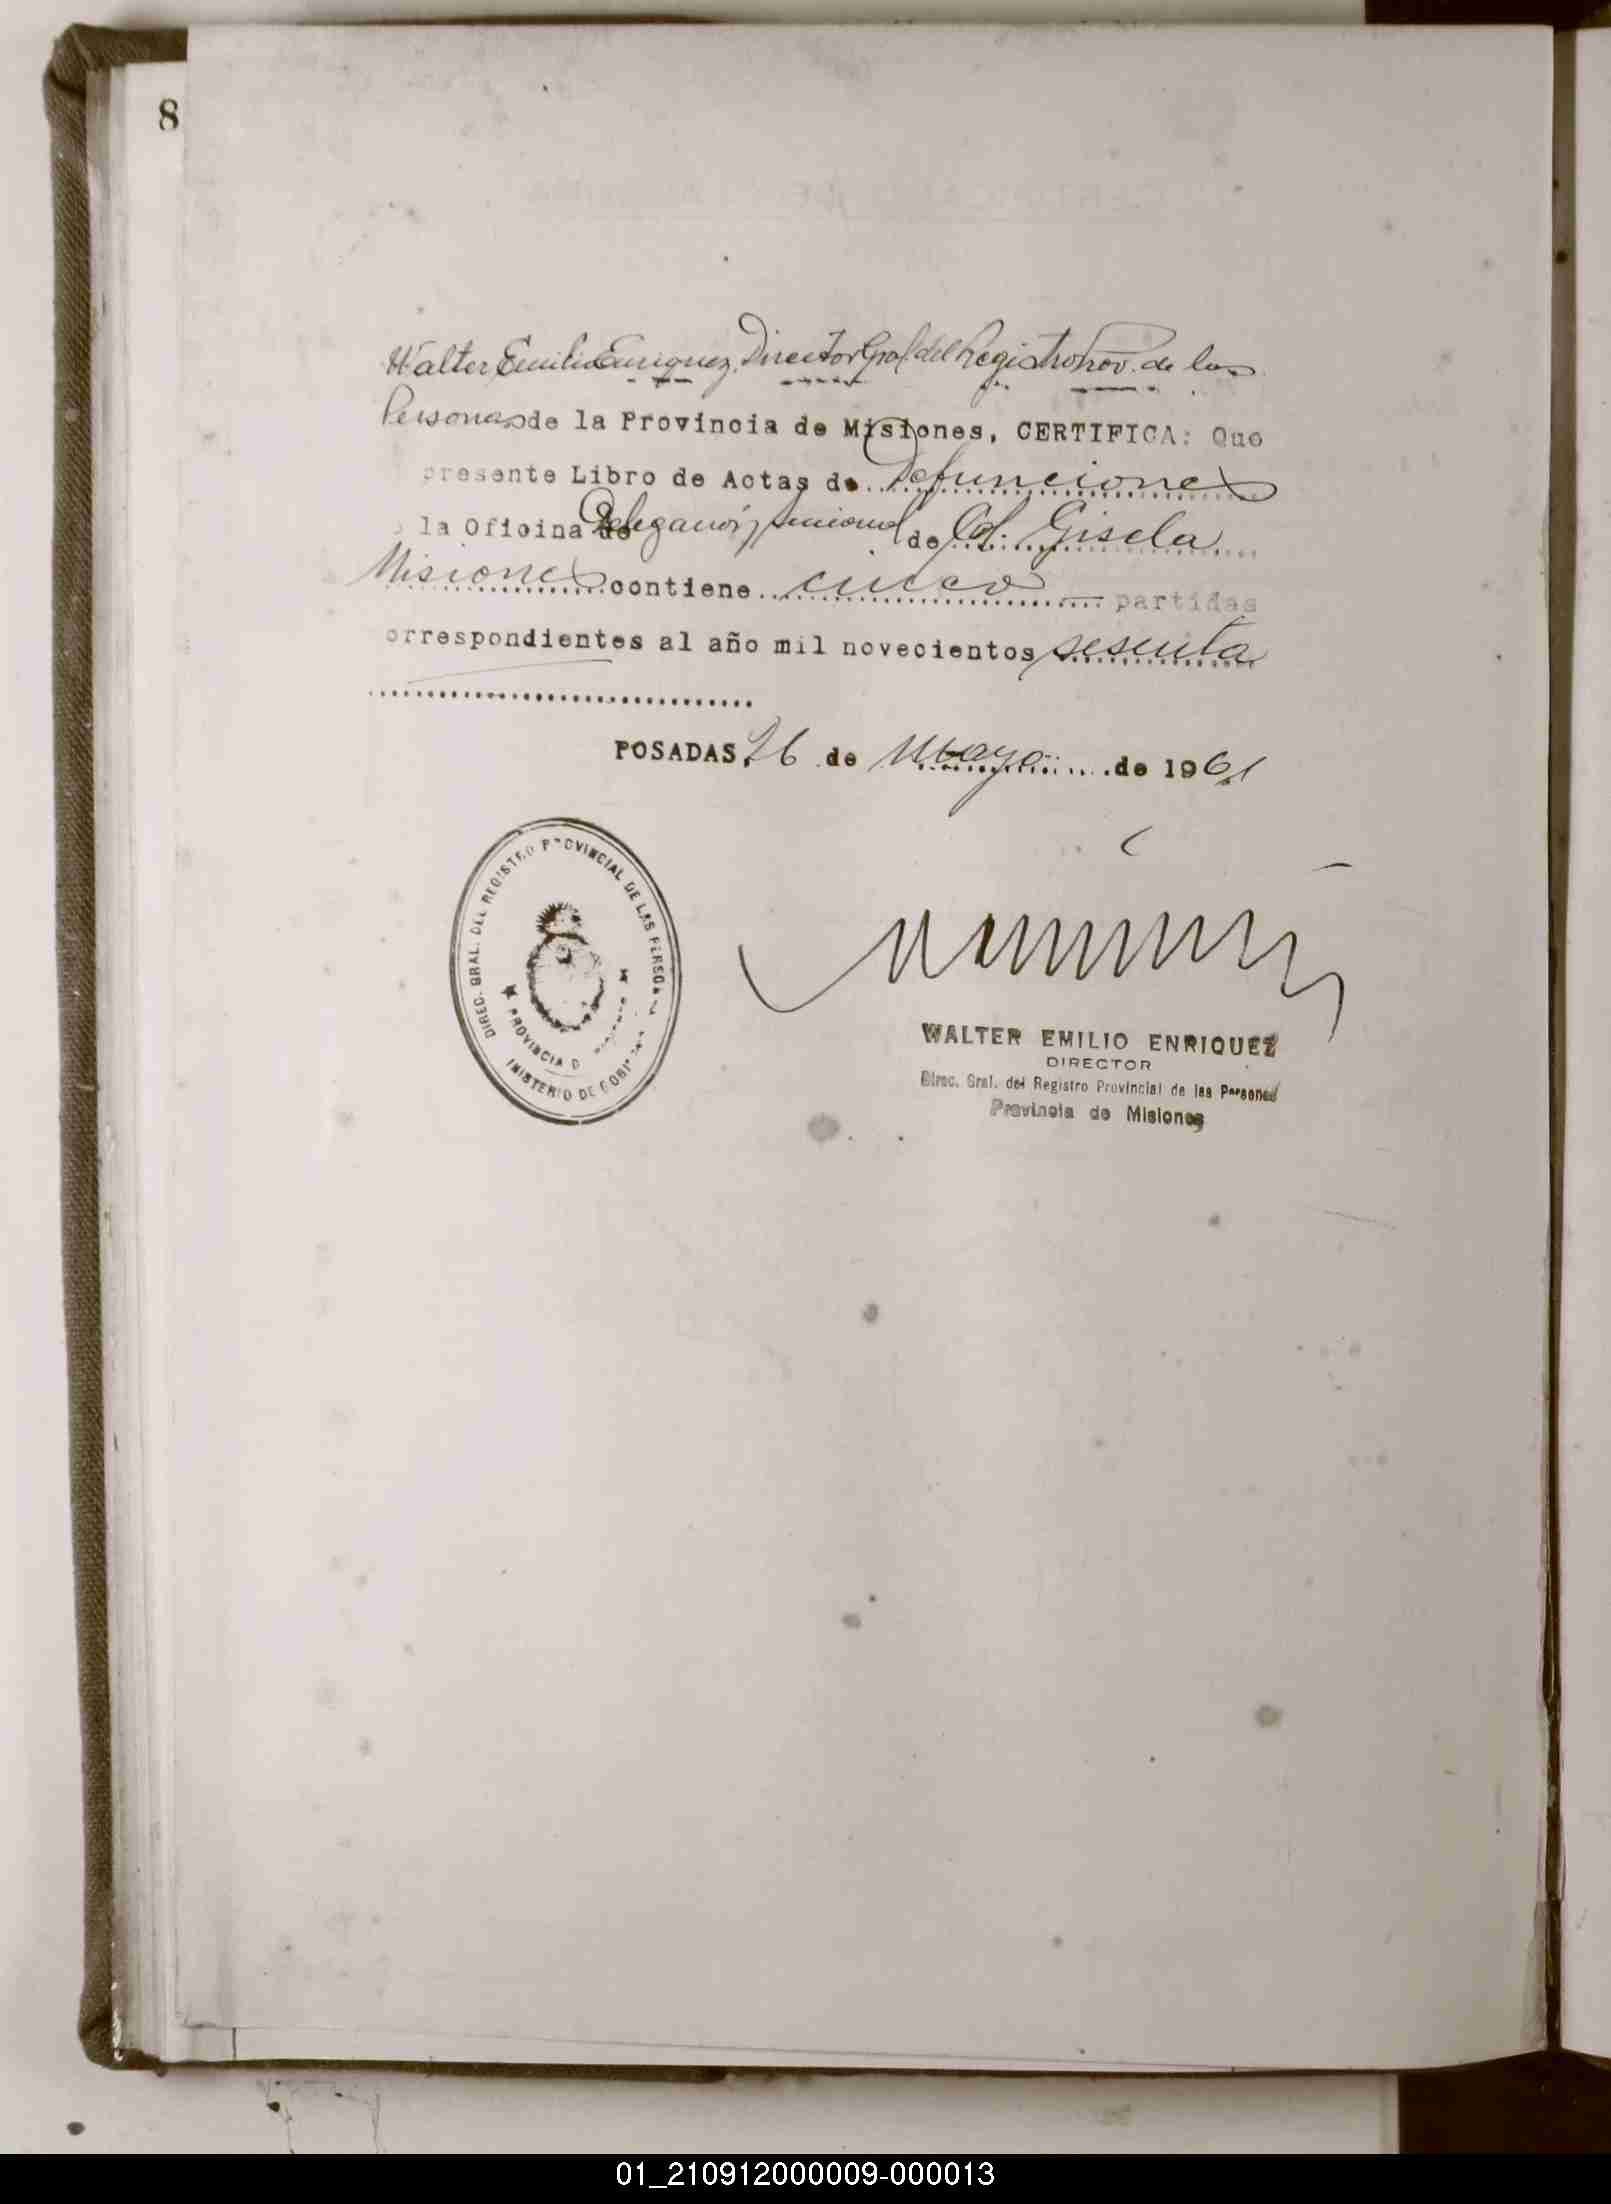 8
Walter Emilio Enriquez, Director Gral del Registro Prov. de las
Personas de la Provincia de Misiones, CERTIFICA: Que
presente Libro de Actas de Defunciones
la Oficina de Delegación Seccional de Col. Gisela
Misiones contiene cinco partidas
orrespondientes al año mil novecientos sesenta
POSADAS, 26 de Mayo de 1961
DIREC. GRAL. DEL REGISTRO PROVINCIAL DE LAS PERSONA
PROVINCIA D
INISTERIO DE GOBI
WALTER EMILIO ENRIQUEZ
DIRECTOR
Direc. Gral. del Registro Provincial de las Personas
Provincia de Misiones
01_210912000009-000013